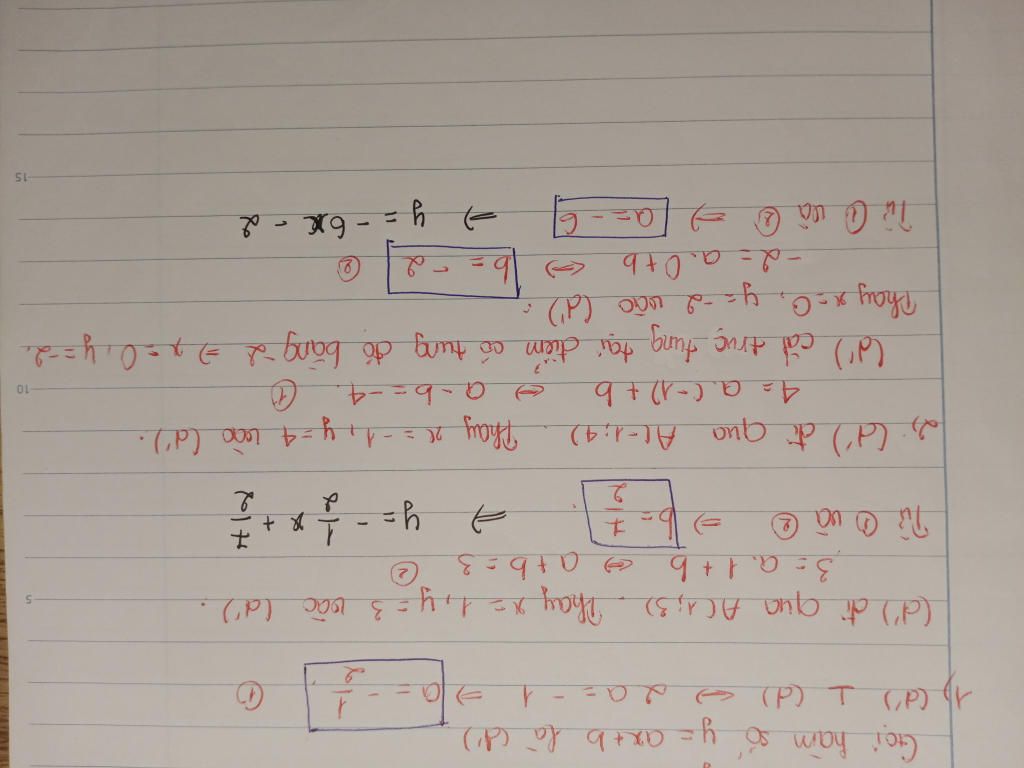 Gọi hàm số y = ax + b là (d')
1, (d') ⊥ (d) ⇔ 2a = -1 ⇒ a = -1/2 ①
(d') đi qua A(1;3). Thay x = 1, y = 3 vào (d').
3 = a.1 + b ⇔ a + b = 3 ②
Từ ① và ② ⇒ b = 7/2 ⇒ y = -1/2 x + 7/2
2, (d') đi qua A(-1;4). Thay x = -1, y = 4 vào (d').
4 = a.(-1) + b ⇔ a - b = -4. ①
(d') cắt trục tung tại điểm có tung độ bằng -2 ⇒ x = 0, y = -2.
Thay x = 0, y = -2 vào (d'):
-2 = a.0 + b ⇔ b = -2 ②
Từ ① và ② ⇒ a = -6 ⇒ y = -6x - 2
5
10
15